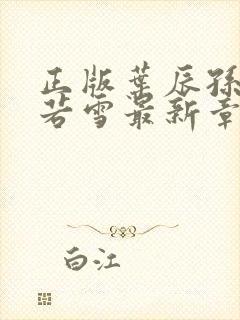 正版葉辰孫
若雪最新章
白江